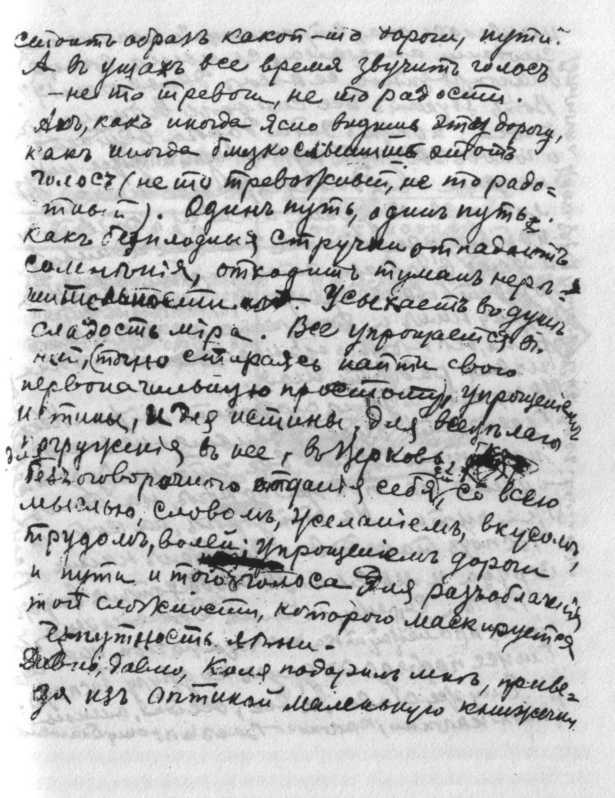 стоитъ образъ какой-то дороги, пути.
А въ ушахъ все время звучитъ голосъ
– не то тревоги, не то радости.
Ахъ, какъ иногда ясно видишь эту дорогу,
какъ иногда близко слышишь этотъ
голосъ (не то тревожный, не то радо-
стный). Одинъ путь, одинъ путь.
Какъ безплодныя стручки отпадаютъ
сомнѣнія, отходитъ туманъ нерѣ-
шительности. Усыхаетъ въ душѣ
сладость міра. Все упрощается въ
ней, точно стараясь найти свою
первоначальную простоту, упрощеніемъ
истины, и для истины, для всецѣлаго
погруженія въ нее, въ Церковь, для
безоговорочнаго отданія себя, со всею
мыслью, словомъ, желаніемъ, вкусомъ,
трудомъ, волей; упрощеніемъ дороги
и пути и того голоса для разоблаченія
той сложности, которою маскируется
лжи.
Давно, давно, Коля подарилъ мнѣ, приве-
зя изъ Оптиной маленькую книжечку